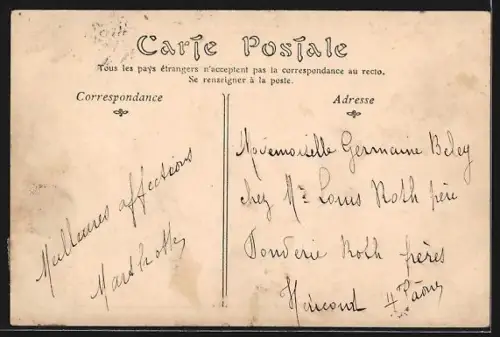 Carte Postale
Tous les pays étrangers n'acceptent pas la correspondance au recto.
Se renseigner à la poste.
Correspondance
Adresse
Meilleures affections
Mademoiselle Germaine Beley
chez Mr Louis Roth père
Fonderie Roth frères
Héricourt Hte Saône